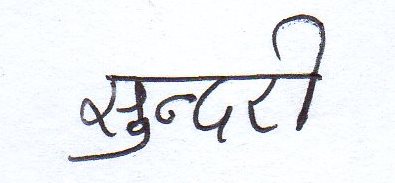 सुन्दरी